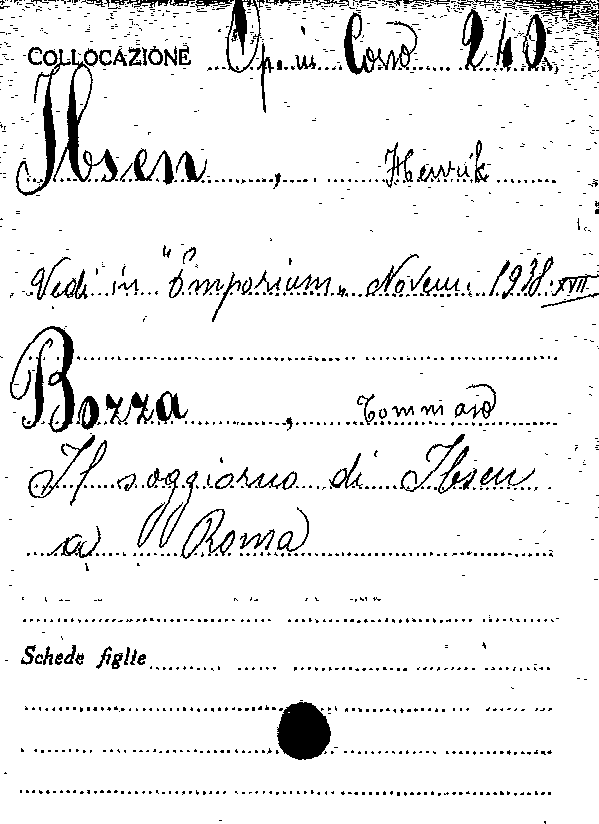 COLLOCAZIONE Op. in Corso 240.
Ibsen, Henrik
Vedi in "Emporium„ Novem. 1938.XVII
Bozza, Tommaso
Il soggiorno di Ibsen
a Roma
Schede figlie